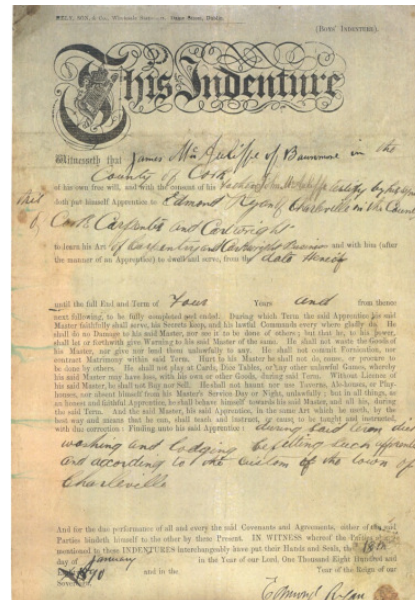 (BOYS' INDENTURE).
This Indenture
Witnesseth that James in the
County of Cork
of his own free will, and with the consent of his
doth put himself Apprentice to Edmond Ryan of Charleville in the County
of Cork Carpenter and Cartwright
to learn his Art of and with him (after
the manner of an Apprentice) to dwell and serve, from the date hereof
until the full End and Term of Four Years and from thence
next following, to be fully completed and ended. During which Term the said Apprentice his said
Master faithfully shall serve, his Secrets keep, and his lawful Commands every where gladly do. He
shall do no Damage to his said Master, nor see it to be done of others; but that he, to his power,
shall let or forthwith give Warning to his said Master of the same. He shall not waste the Goods of
his Master, nor give nor lend them unlawfully to any. He shall not commit Fornication, nor
contract Matrimony within said Term. Hurt to his Master he shall not do, cause, or procure to
be done by others. He shall not play at Cards, Dice Tables, or any other unlawful Games, whereby
his said Master may have loss, with his own or other Goods, during said Term. Without License of
his said Master, he shall not Buy nor Sell. He shall not haunt nor use Taverns, Ale-houses, or Play-
houses, nor absent himself from his Master's Service Day or Night, unlawfully; but in all things, as
an honest and faithful Apprentice, he shall behave himself towards his said Master, and all his, during
the said Term. And the said Master, his said Apprentice, in the same Art which he useth, by the
best way and means that he can, shall teach and instruct, or cause to be taught and instructed,
with due correction: Finding unto his said Apprentice: during said term
washing and lodging befitting such
and according to the custom of the town of
Charleville
And for the due performance of all and every the said Covenants and Agreements, either of the said
Parties bindeth himself to the other by these Present. IN WITNESS whereof the Parties
mentioned to these INDENTURES interchangeably have put their Hands and Seals, the 18th
day of January in the Year of our Lord, One Thousand Eight Hundred and
1890 and in the Year of the Reign of our
Sovereign
Edmond Ryan